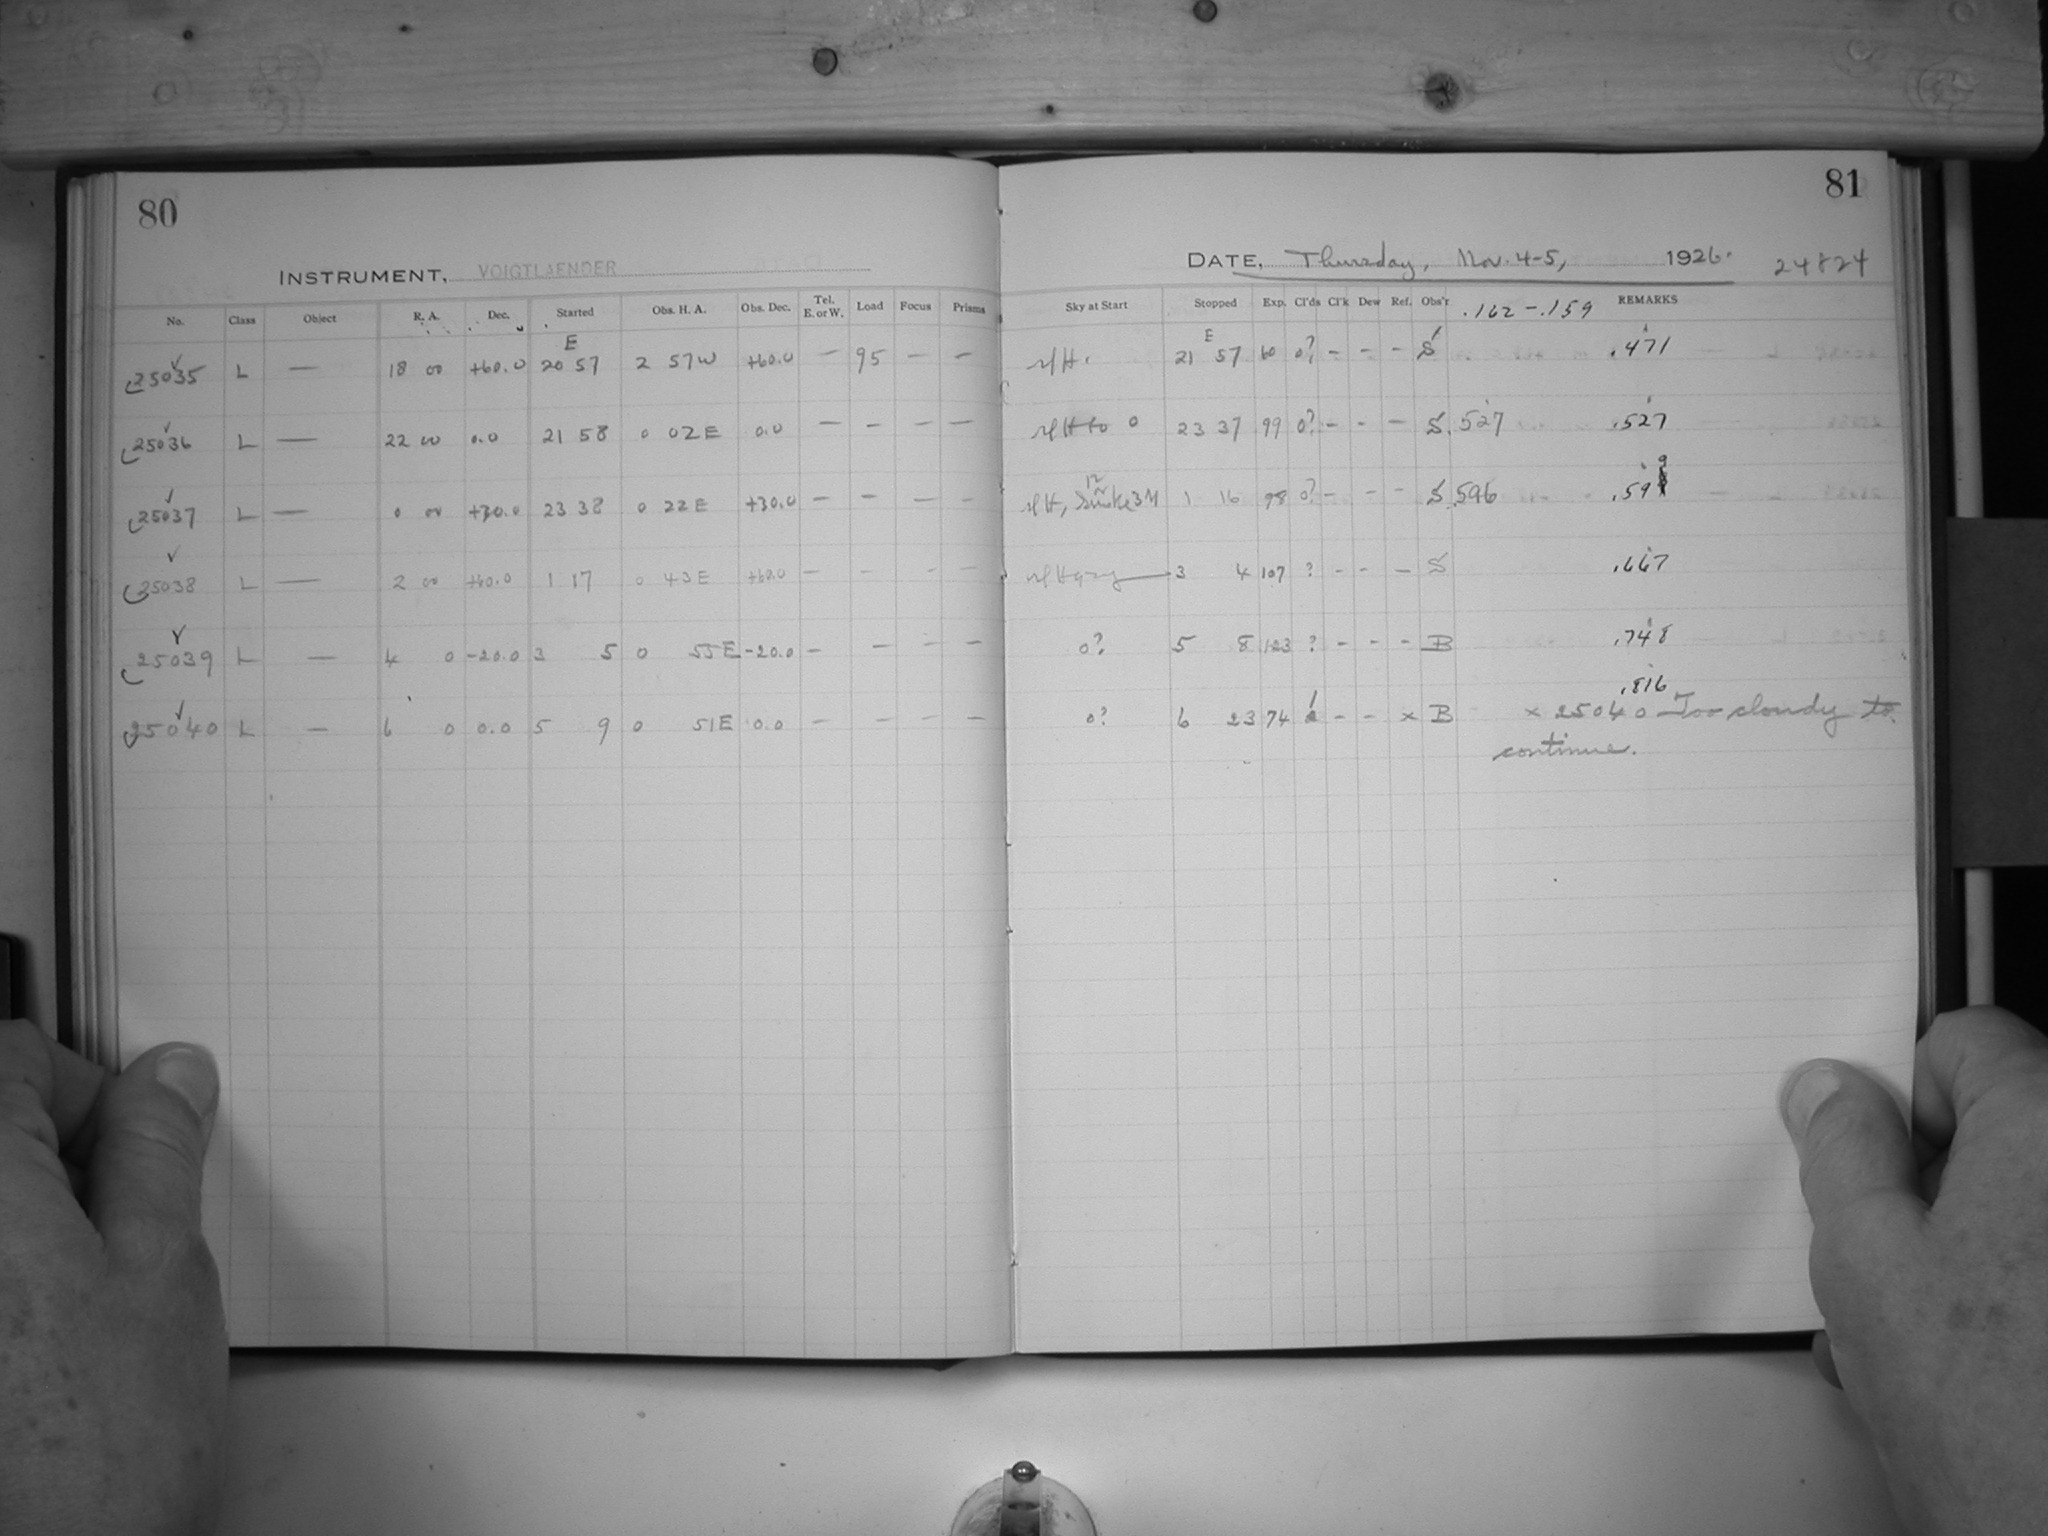 80
INSTRUMENT, VOIGTLAENDER
No. Class Object R. A. Dec. Started Obs. H. A. Obs. Dec. Tel. E. or W. Load Focus Prisms
E
25035 L — 18 00 +60.0 20 57 2 57W +60.0 — 95 — —
25036 L — 22 00 0.0 21 58 0 02E 0.0 — — — —
25037 L — 0 00 +30.0 23 38 0 22E +30.0 — — — —
25038 L — 2 00 +60.0 1 17 0 43E +60.0 — — — —
25039 L — 4 0 -20.0 3 5 0 55E -20.0 — — — —
25040 L — 6 0 0.0 5 9 0 51E 0.0 — — — —
81
DATE, Thursday, Nov. 4-5, 1926. 24824
Sky at Start Stopped Exp. Cl'ds Cl'k Dew Ref. Obs'r .162 - .159 REMARKS
E
21 57 60 0? - - - S .471
0 23 37 99 0? - - - S .527 .527
Smoke 1 16 98 0? - - - S .596 .599
3 4 107 ? - - - S .667
0? 5 8 123 ? - - - B .748
.816
0? 6 23 74 - - x B x 25040 Too cloudy to
continue.